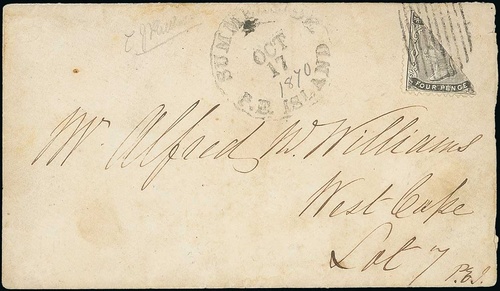 SUMMERSIDE
OCT
17
1870
P.E. ISLAND
FOUR PENCE
Mr. Alfred W. Williams
West Cape
Lot 7
P.E.I.